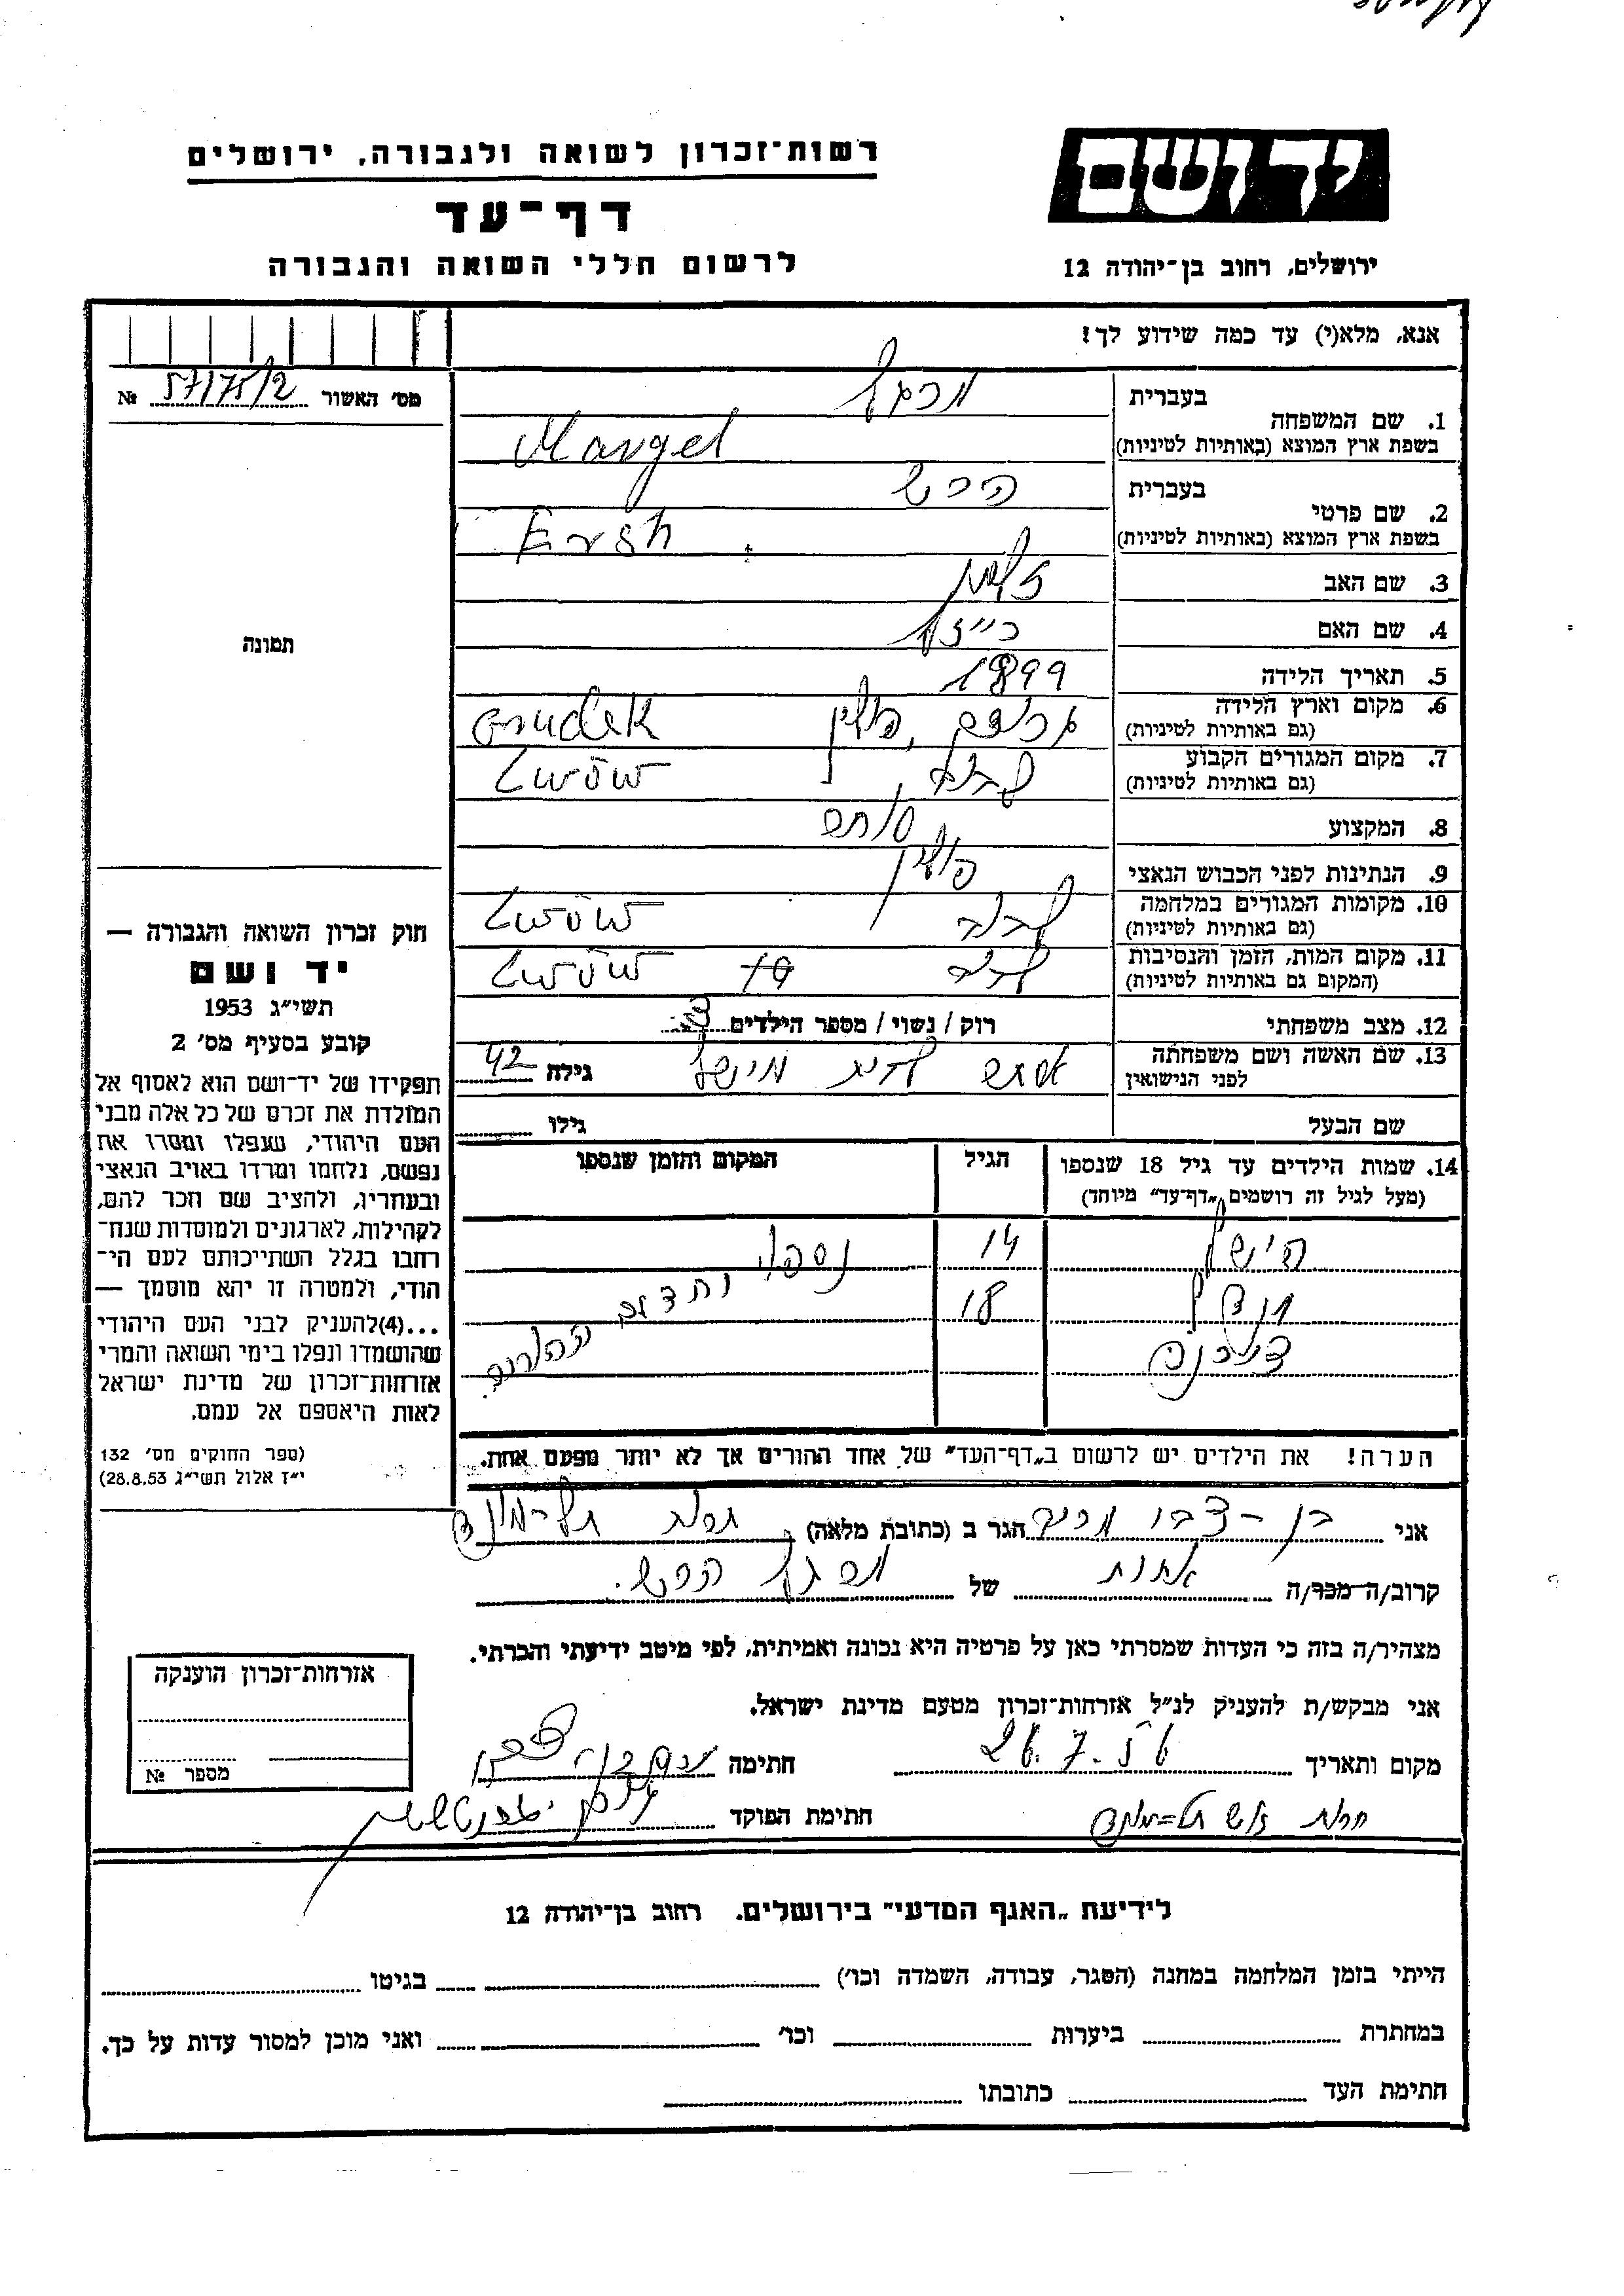 רשות־זכרון לשואה ולגבורה, ירושלים
דף־עד
לרשום חללי השואה והגבורה
יד ושם
ירושלים, רחוב בן־יהודה 12
אנא, מלא(י) עד כמה שידוע לך!
מס' האשור 57/75/2 №
תמונה
חוק זכרון השואה והגבורה —
יד ושם
תשי״ג 1953
קובע בסעיף מס' 2
תפקידו של יד־ושם הוא לאסוף אל
המולדת את זכרם של כל אלה מבני
העם היהודי, שנפלו ומסרו את
נפשם, נלחמו ומרדו באויב הנאצי
ובעוזריו, ולהציב שם וזכר להם,
לקהילות, לארגונים ולמוסדות שנח־
רחבו בגלל השתייכותם לעם הי־
הודי, ולמטרה זו יהא מוסמך —
...(4)להעניק לבני העם היהודי
שהושמדו ונפלו בימי השואה והמרי
אזרחות־זכרון של מדינת ישראל
לאות היאספם אל עמם.
(ספר החוקים מס' 132
י״ז אלול תשי״ג 28.8.53)
1. שם המשפחה
בעברית
בשפת ארץ המוצא (באותיות לטיניות) Mangel
2. שם פרטי
בעברית הרש
בשפת ארץ המוצא (באותיות לטיניות) Ersh
3. שם האב
4. שם האם ריזל
5. תאריך הלידה 1899
6. מקום וארץ הלידה
(גם באותיות לטיניות) פולין Grudek
7. מקום המגורים הקבוע
(גם באותיות לטיניות) לבוב Lwów
8. המקצוע סוחר
9. הנתינות לפני הכבוש הנאצי פולין
10. מקומות המגורים במלחמה
(גם באותיות לטיניות) לבוב Lwów
11. מקום המות, הזמן והנסיבות
(המקום גם באותיות לטיניות) לבוב Lwów
12. מצב משפחתי רוק / נשוי / מספר הילדים 3
13. שם האשה ושם משפחתה
לפני הנישואין אסתר לבית גילה 42
שם הבעל גילו
14. שמות הילדים עד גיל 18 שנספו
(מעל לגיל זה רושמים „דף־עד״ מיוחד) הגיל המקום והזמן שנספו
14 נספו
18
הערה! את הילדים יש לרשום ב„דף־העד״ של אחד ההורים אך לא יותר מפעם אחת.
אני בן־צבי הגר ב (כתובת מלאה)
קרוב/ה מכר/ה אחות של מנגל הרש.
מצהיר/ה בזה כי העדות שמסרתי כאן על פרטיה היא נכונה ואמיתית, לפי מיטב ידיעתי והכרתי.
אני מבקש/ת להעניק לנ״ל אזרחות־זכרון מטעם מדינת ישראל.
מקום ותאריך 26.7.56 חתימה
חתימת הפוקד
אזרחות־זכרון הוענקה
מספר №
לידיעת „האגף המדעי״ בירושלים. רחוב בן־יהודה 12
הייתי בזמן המלחמה במחנה (הסגר, עבודה, השמדה וכו') בגיטו
במחתרת ביערות וכו' ואני מוכן למסור עדות על כך.
חתימת העד כתובתו